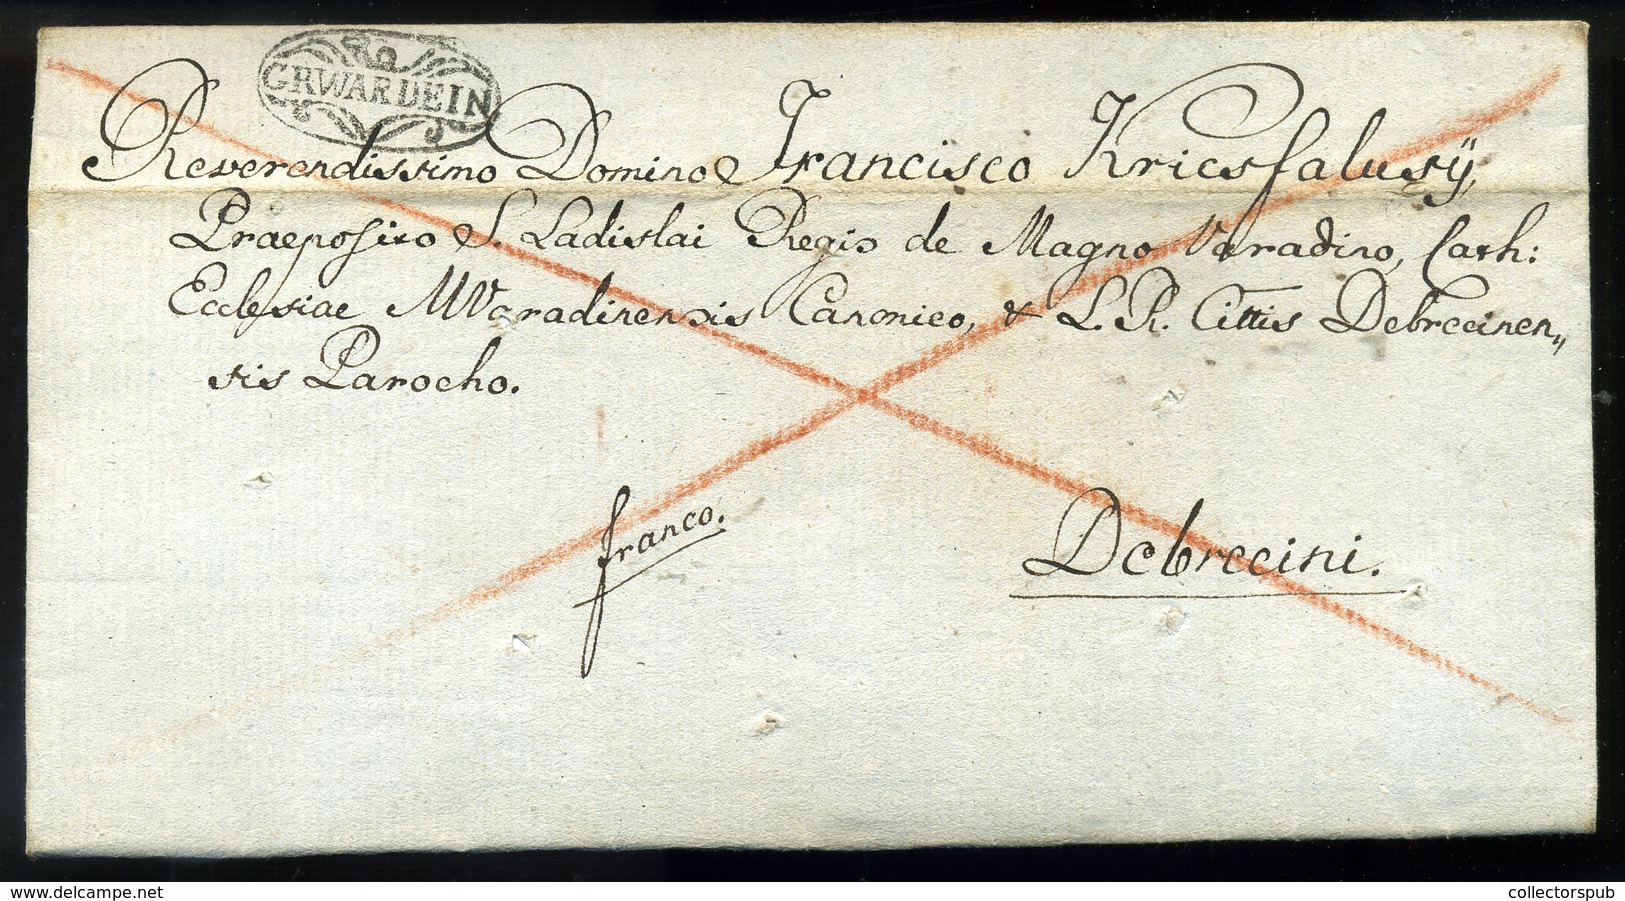 GRWARDEIN
Reverendissimo Domino Francisco Kricsfalusÿ,
Praeposito S. Ladislai Regis de Magno Varadino, Cath:
Ecclesiae MVaradinensis Canonico, & L. R. Cittis Debreczinen„
sis Parocho.
franco.
Debreczini.
www.delcampe.net
collectorspub